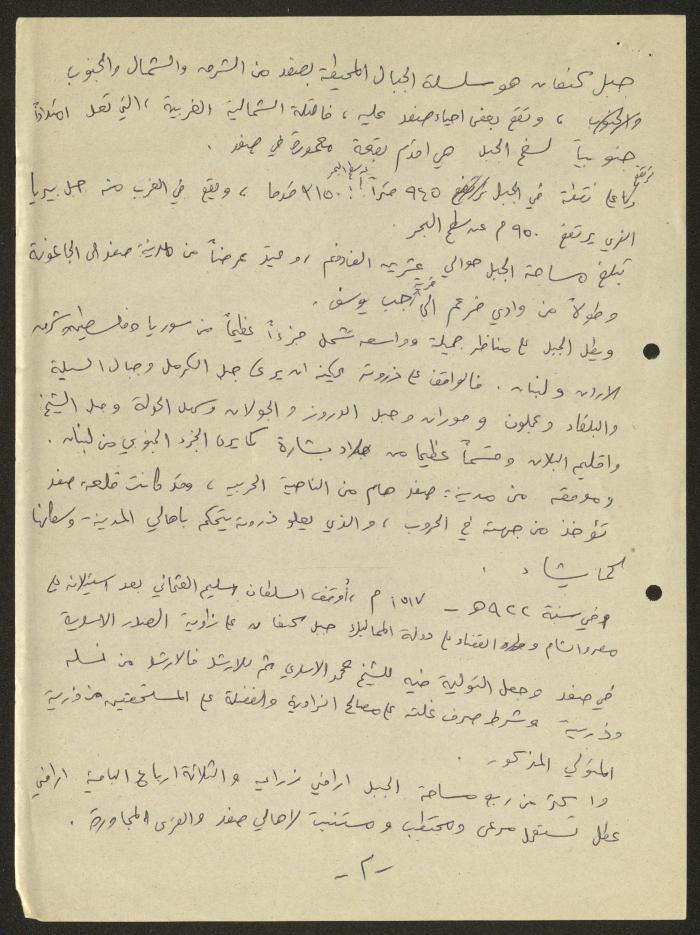 جبل كنعان هو سلسلة الجبال المحيطة بصفد من الشرق والشمال والجنوب
، وتقع بعض احياء صفد عليه ، فاكلة الشمالية الغربية ، التي تعد امتداداً
جنوبياً لسفح الجبل هي اقدم بقعة معمورة في صفد .
اعلى نقطة في الجبل ترتفع ٩٤٥ متراً ٣١٥٠ قدما ، ويقع في الغرب منه جبل بيريا
الذي يرتفع ٩٥٠ م عن سطح البحر .
تبلغ مساحة الجبل حوالي عشرين الف دنم ، وتمتد عرضاً من مدينة صفد الى الجاعونة
وطولاً من وادي الى قرية جب يوسف .
ويطل الجبل على مناظر جميلة وواسعه تشمل جزءاً عظيماً من سوريا وفلسطين وشرق
الاردن ولبنان . فالواقف على ذروته يمكنه ان يرى جبل الكرمل وجبال السيلة
والبلقاء وعجلون وحوران وجبل الدروز والجولان وسهل الحولة وجبل الشيخ
واقليم البلان وقسماً عظيما من بلاد بشارة كما يرى الجزء الجنوبي من لبنان .
وموقعه من مدينة صفد هام من الناحية الحربيه ، وقد كانت قلعة صفد
تؤخذ من جهته في الحروب ، والذي يعلو ذروته يتحكم باهالي المدينة وسكانها
كما يشاء .
وفي سنة ٩٢٢هـ - ١٥١٧ م ، أوقف السلطان سليم العثماني بعد استيلائه على
مصر والشام والقضاء على دولة المماليك جبل كنعان على زاوية الصدر الاسدية
في صفد وجعل التولية فيه للشيخ محمد الاسدي ثم للارشد فالارشد من نسله
وذريته وشرط صرف غلته على مصالح الزاوية والفضلة على المستحقين من ذرية
المتولي المذكور .
واكثر من ربع مساحة الجبل اراضي زراعيه والثلاثة ارباع الباقية اراضي
عطل تستعمل مرعى ومحتطب ومستنبت لاهالي صفد والقرى المجاورة .
- ٢ -